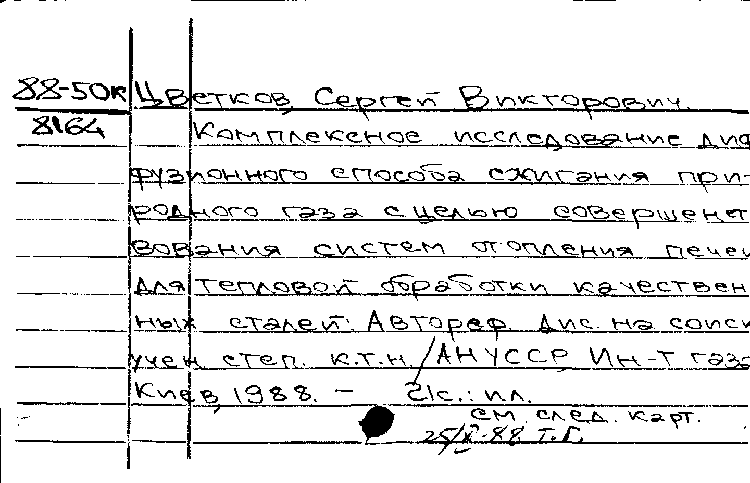 88-50к Цветков, Сергей Викторович.
8164 Комплексное исследование диф
фузионного способа сжигания при-
родного газа с целью совершенст
вования систем отопления печей
для тепловой обработки качествен
ных сталей: Автореф. дис. на соиск
учен. степ. к.т.н. / АН УССР, Ин-т газа
Киев, 1988. - 21с.: ил.
см. след. карт.
25/X-88. Т.Г.